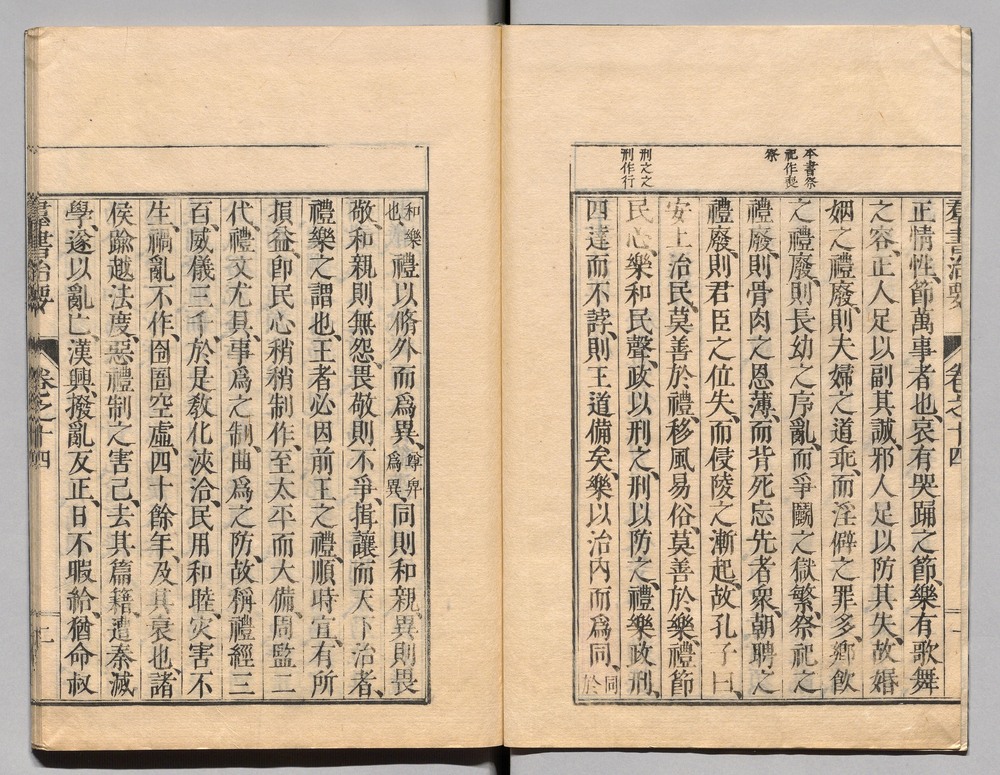 羣書治要 卷之十四 一
本書祭
祀作喪
祭
刑之之
刑作行
正情性、節萬事者也、哀有哭踊之節、樂有歌舞
之容、正人足以副其誠、邪人足以防其失、故婚
姻之禮廢、則夫婦之道乖、而淫僻之罪多、鄉飮
之禮廢、則長幼之序亂、而爭鬭之獄繁、祭祀之
禮廢、則骨肉之恩薄、而背死忘先者衆、朝聘之
禮廢、則君臣之位失、而侵陵之漸起、故孔子曰、
安上治民、莫善於禮、移風易俗、莫善於樂、禮節
民心、樂和民聲、政以刑之、刑以防之、禮樂政刑、
四達而不誖、則王道備矣、樂以治内而爲同、同於
和樂也、禮以脩外而爲異、尊卑爲異、同則和親、異則畏
敬、和親則無怨、畏敬則不爭、揖讓而天下治者、
禮樂之謂也、王者必因前王之禮、順時宜、有所
損益、卽民心、稍稍制作、至太平而大備、周監二
代、禮文尤具、事爲之制、曲爲之防、故稱禮經三
百、威儀三千、於是敎化浹洽、民用和睦、灾害不
生、禍亂不作、囹圄空虛、四十餘年、及其衰也、諸
侯踰越法度、惡禮制之害己、去其篇籍、遭秦滅
學、遂以亂亡、漢興、撥亂反正、日不暇給、猶命叔
羣書治要 卷之十四 二